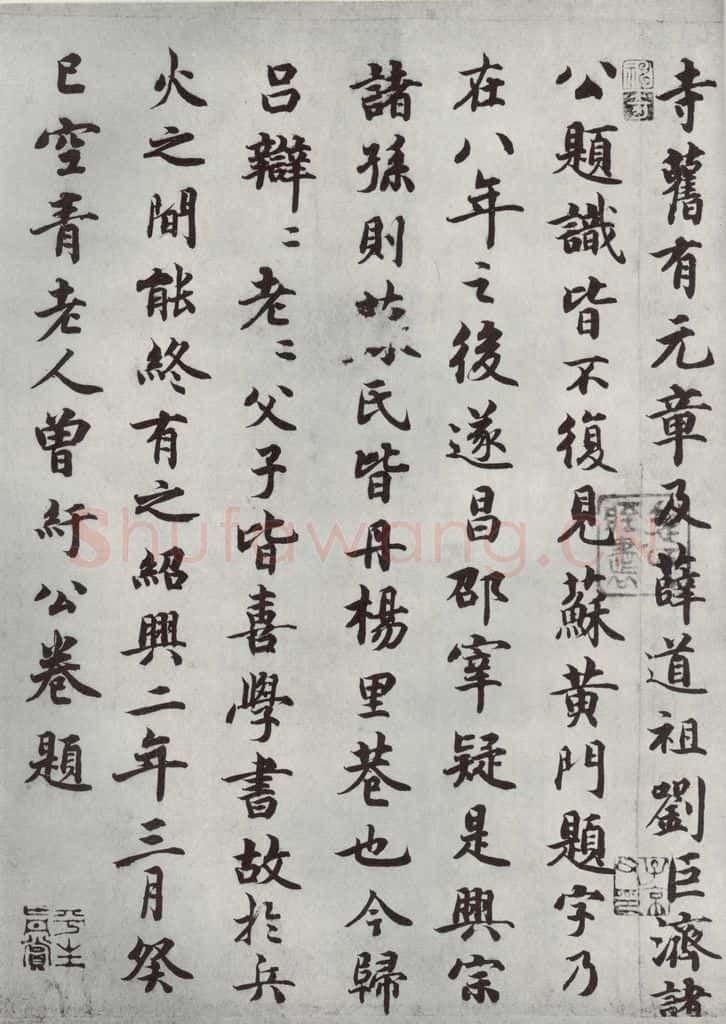 寺舊有元章及薛道祖劉巨濟諸
公題識皆不復見蘇黃門題字乃
在八年之後遂昌邵宰疑是興宗
諸孫則氏皆丹楊里巷也今歸
呂辯〻老〻父子皆喜學書故於兵
火之間能終有之紹興二年三月癸
巳空青老人曾紆公卷題
平生真賞
shufawang.cn